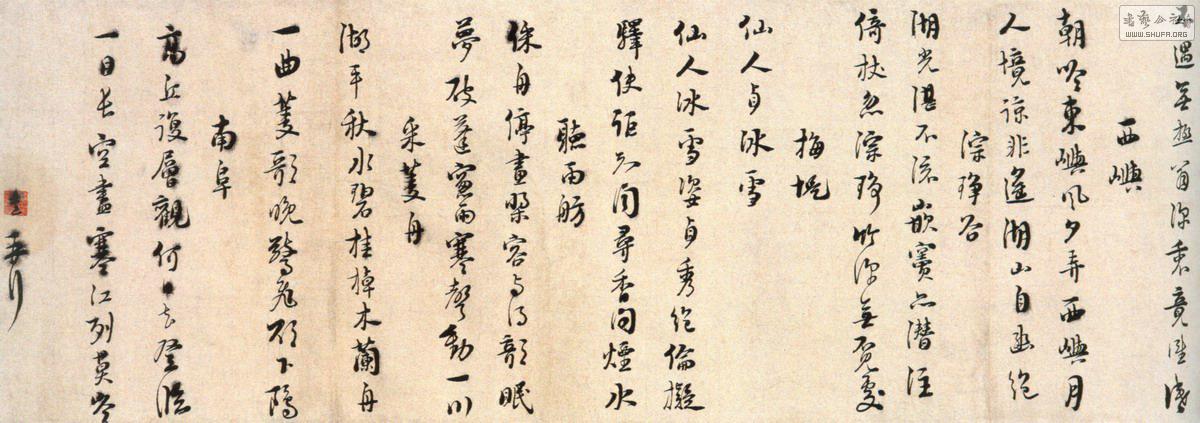 不遇無極翁深衷竟誰識
西嶼
朝吟東嶼風夕弄西嶼月
人境諒非遙湖山自幽絕
淙琤谷
湖光湛不流嵌竇亦潛注
倚杖忽淙琤竹深無覓處
梅堤
仙人貞冰雪
仙人冰雪姿貞秀絕倫擬
驛使詎知聞尋香問煙水
聽雨舫
綵舟停畫槳容与得欹眠
夢破蓬窗雨寒聲動一川
采菱舟
湖平秋水碧桂棹木蘭舟
一曲菱歌晚驚飛欲下鷗
南阜
高丘復層觀何日去登臨
一目長空盡寒江列莫岑
書藝公社
WWW.SHUFA.ORG